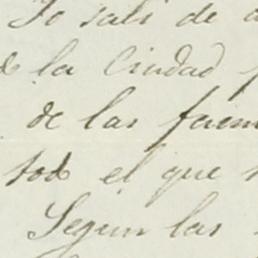 Yo sali de
la Ciudad
de las faem
sod el que
Segun las